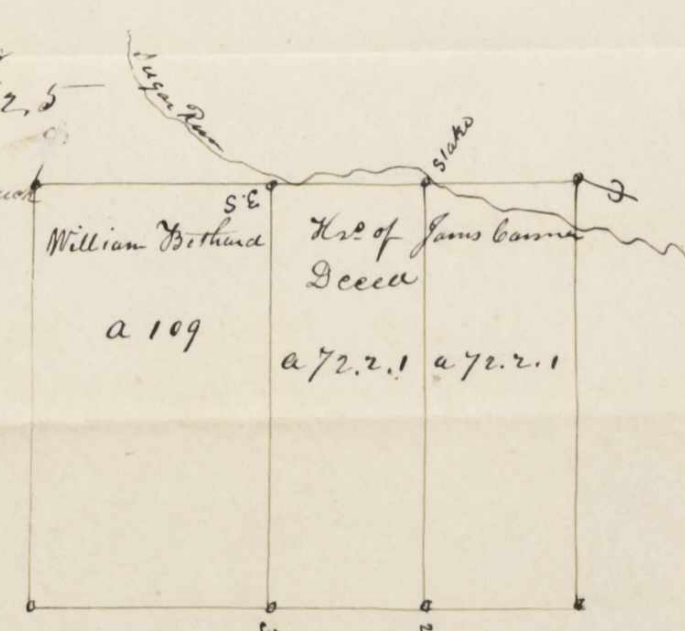 2,5
Sugar Run
Stake
S.E
William Bethard
Hrs of James Conner
Deced
a 109
a 72.2.1
a 72.2.1